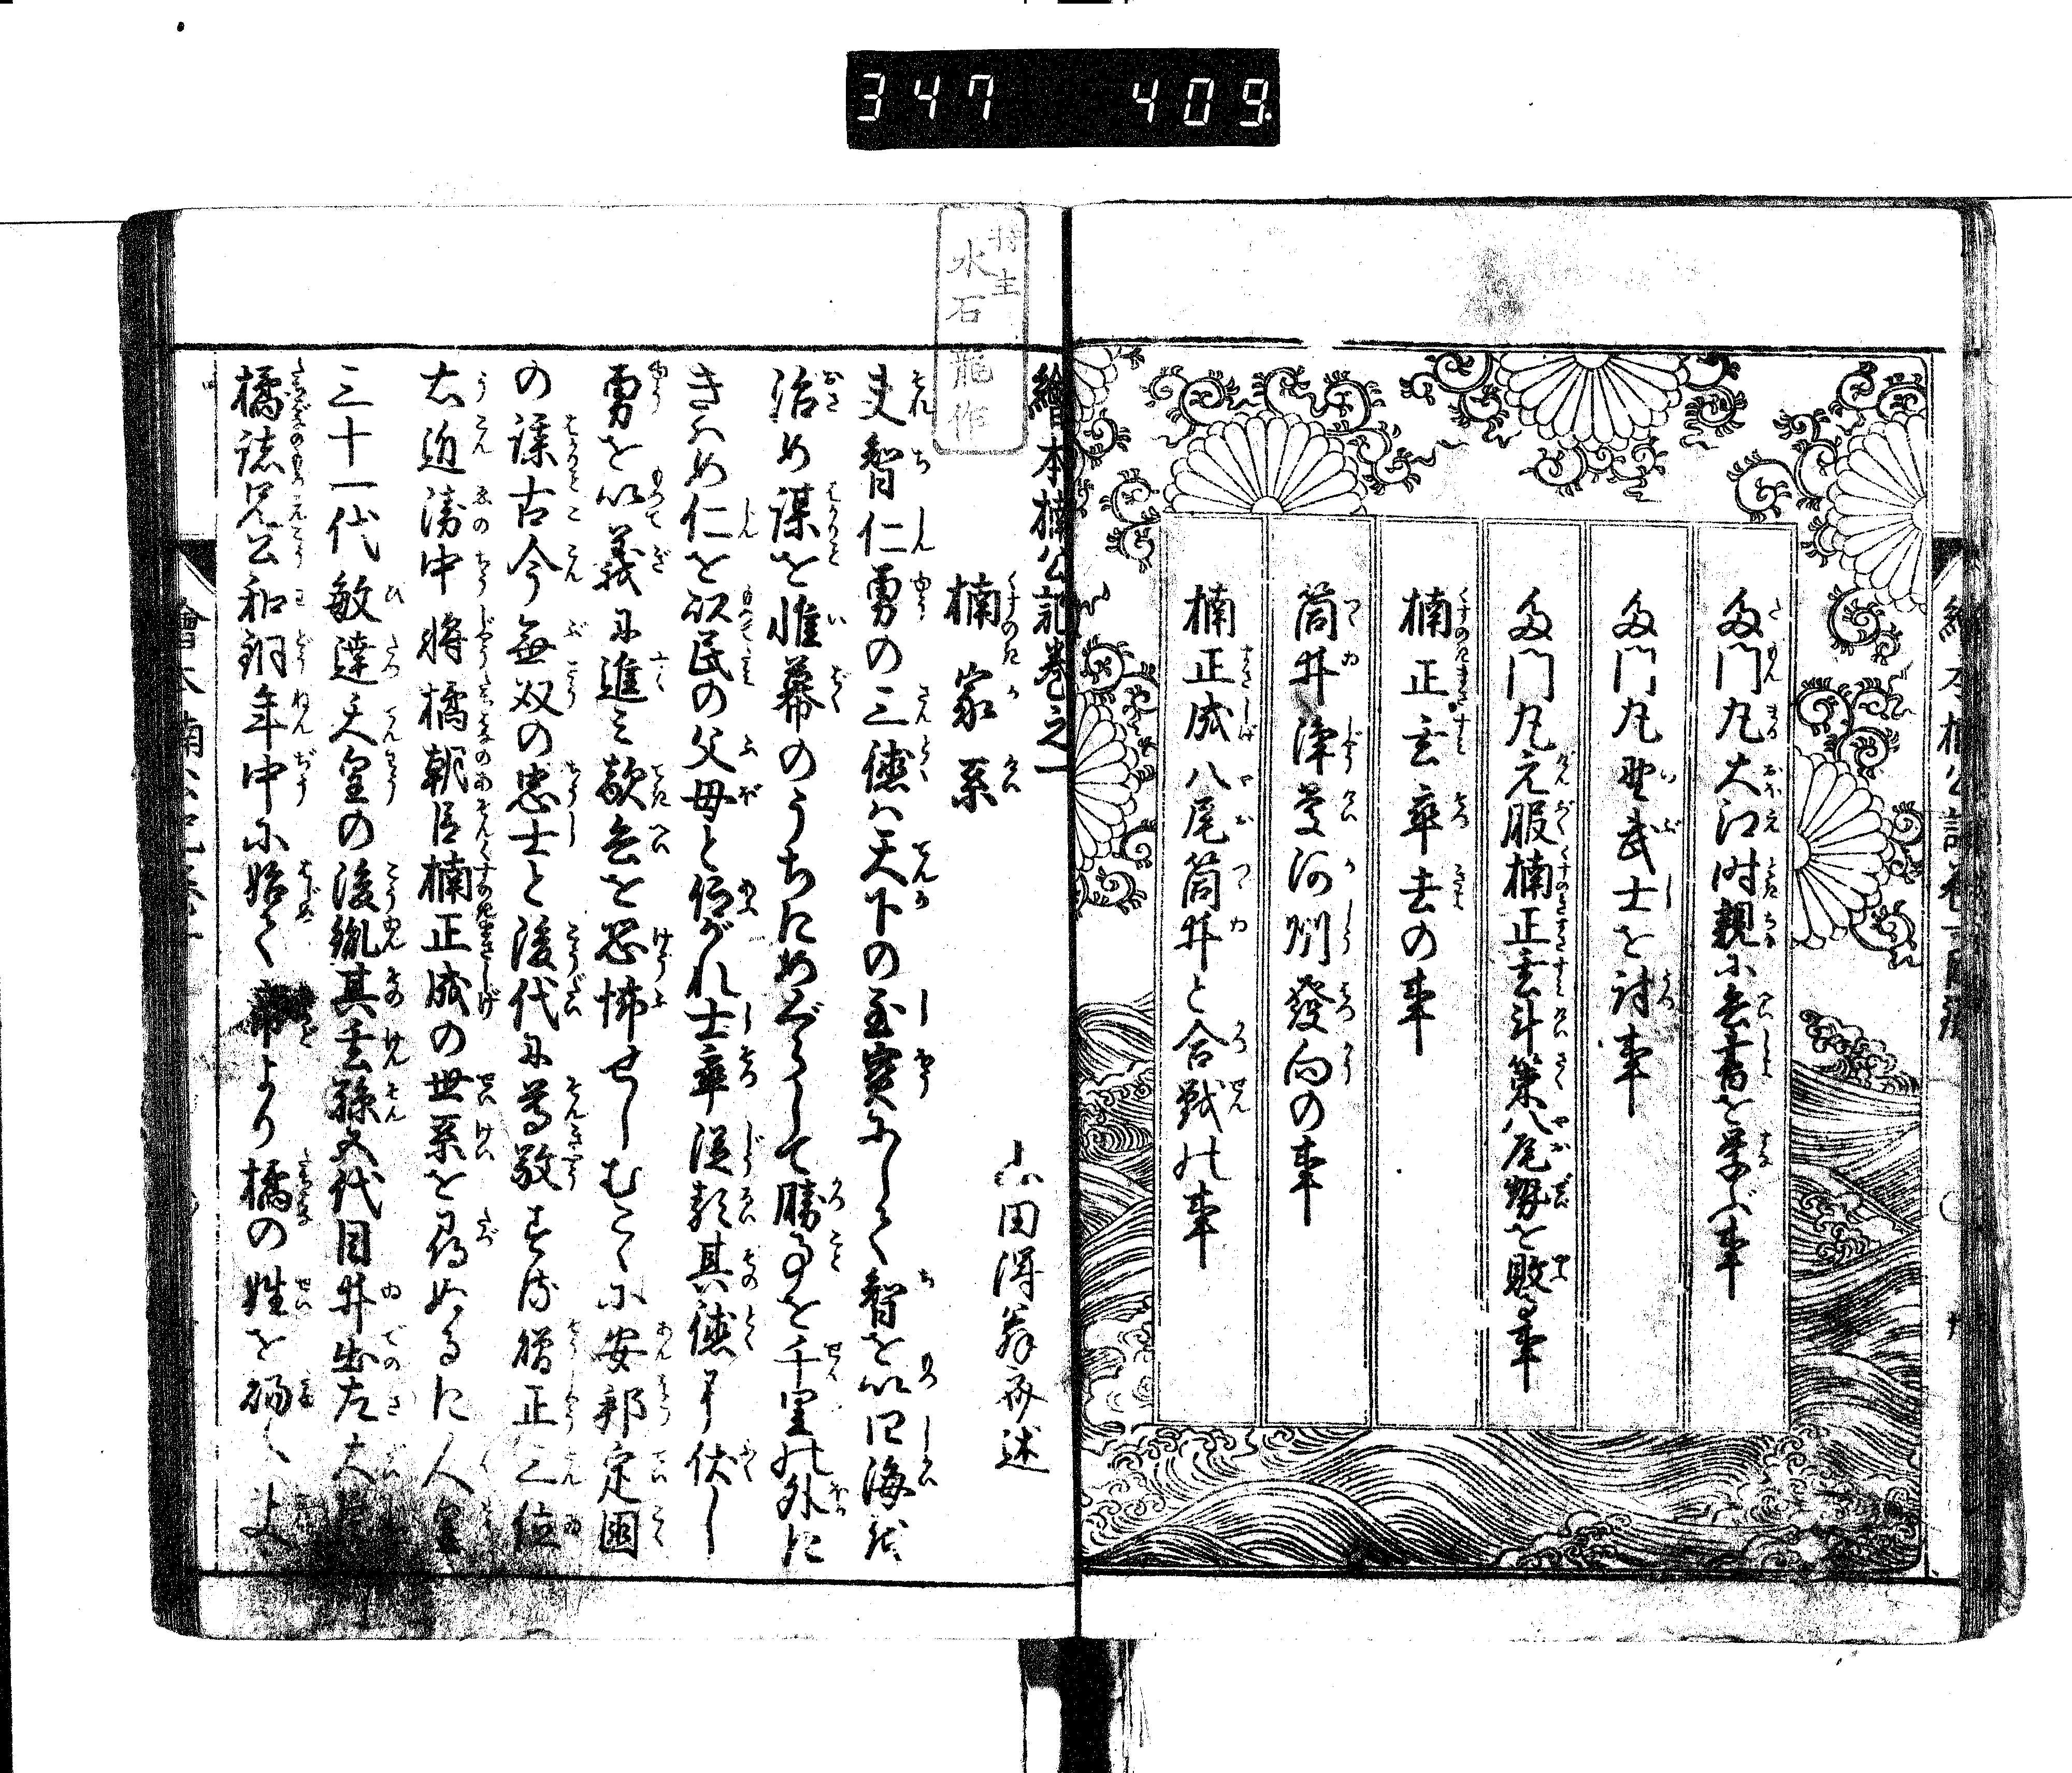 347 409
多門丸大江時親に兵書を学ぶ事
多門丸野武士を討事
多門丸元服楠正玄斗策八尾勢を敗る事
楠正玄卒去の事
筒井浄慶河州發向の事
楠正成八尾筒井と合戦の事
持主
水石龍作
繪本楠公記巻之一
山田得翁斎述
楠家系
夫智仁勇の三徳は天下の至寶にして智を以四海を
治め謀を惟幕のうちにめぐらして勝事を千里の外に
きはめ仁を以民の父母と仰がれ士卒従類其徳に伏し
勇を以義に進み敵兵を恐怖せしむこゝに安邦定国
の謀古今無双の忠士と後代に尊敬す
贈正三位
右近衛中将橘朝臣楠正成の世系を尋ぬるに人皇
三十一代敏達天皇の後胤其玄孫五代目井出左大臣
橘諸兄公和銅年中に始て帝より橘の姓を賜て